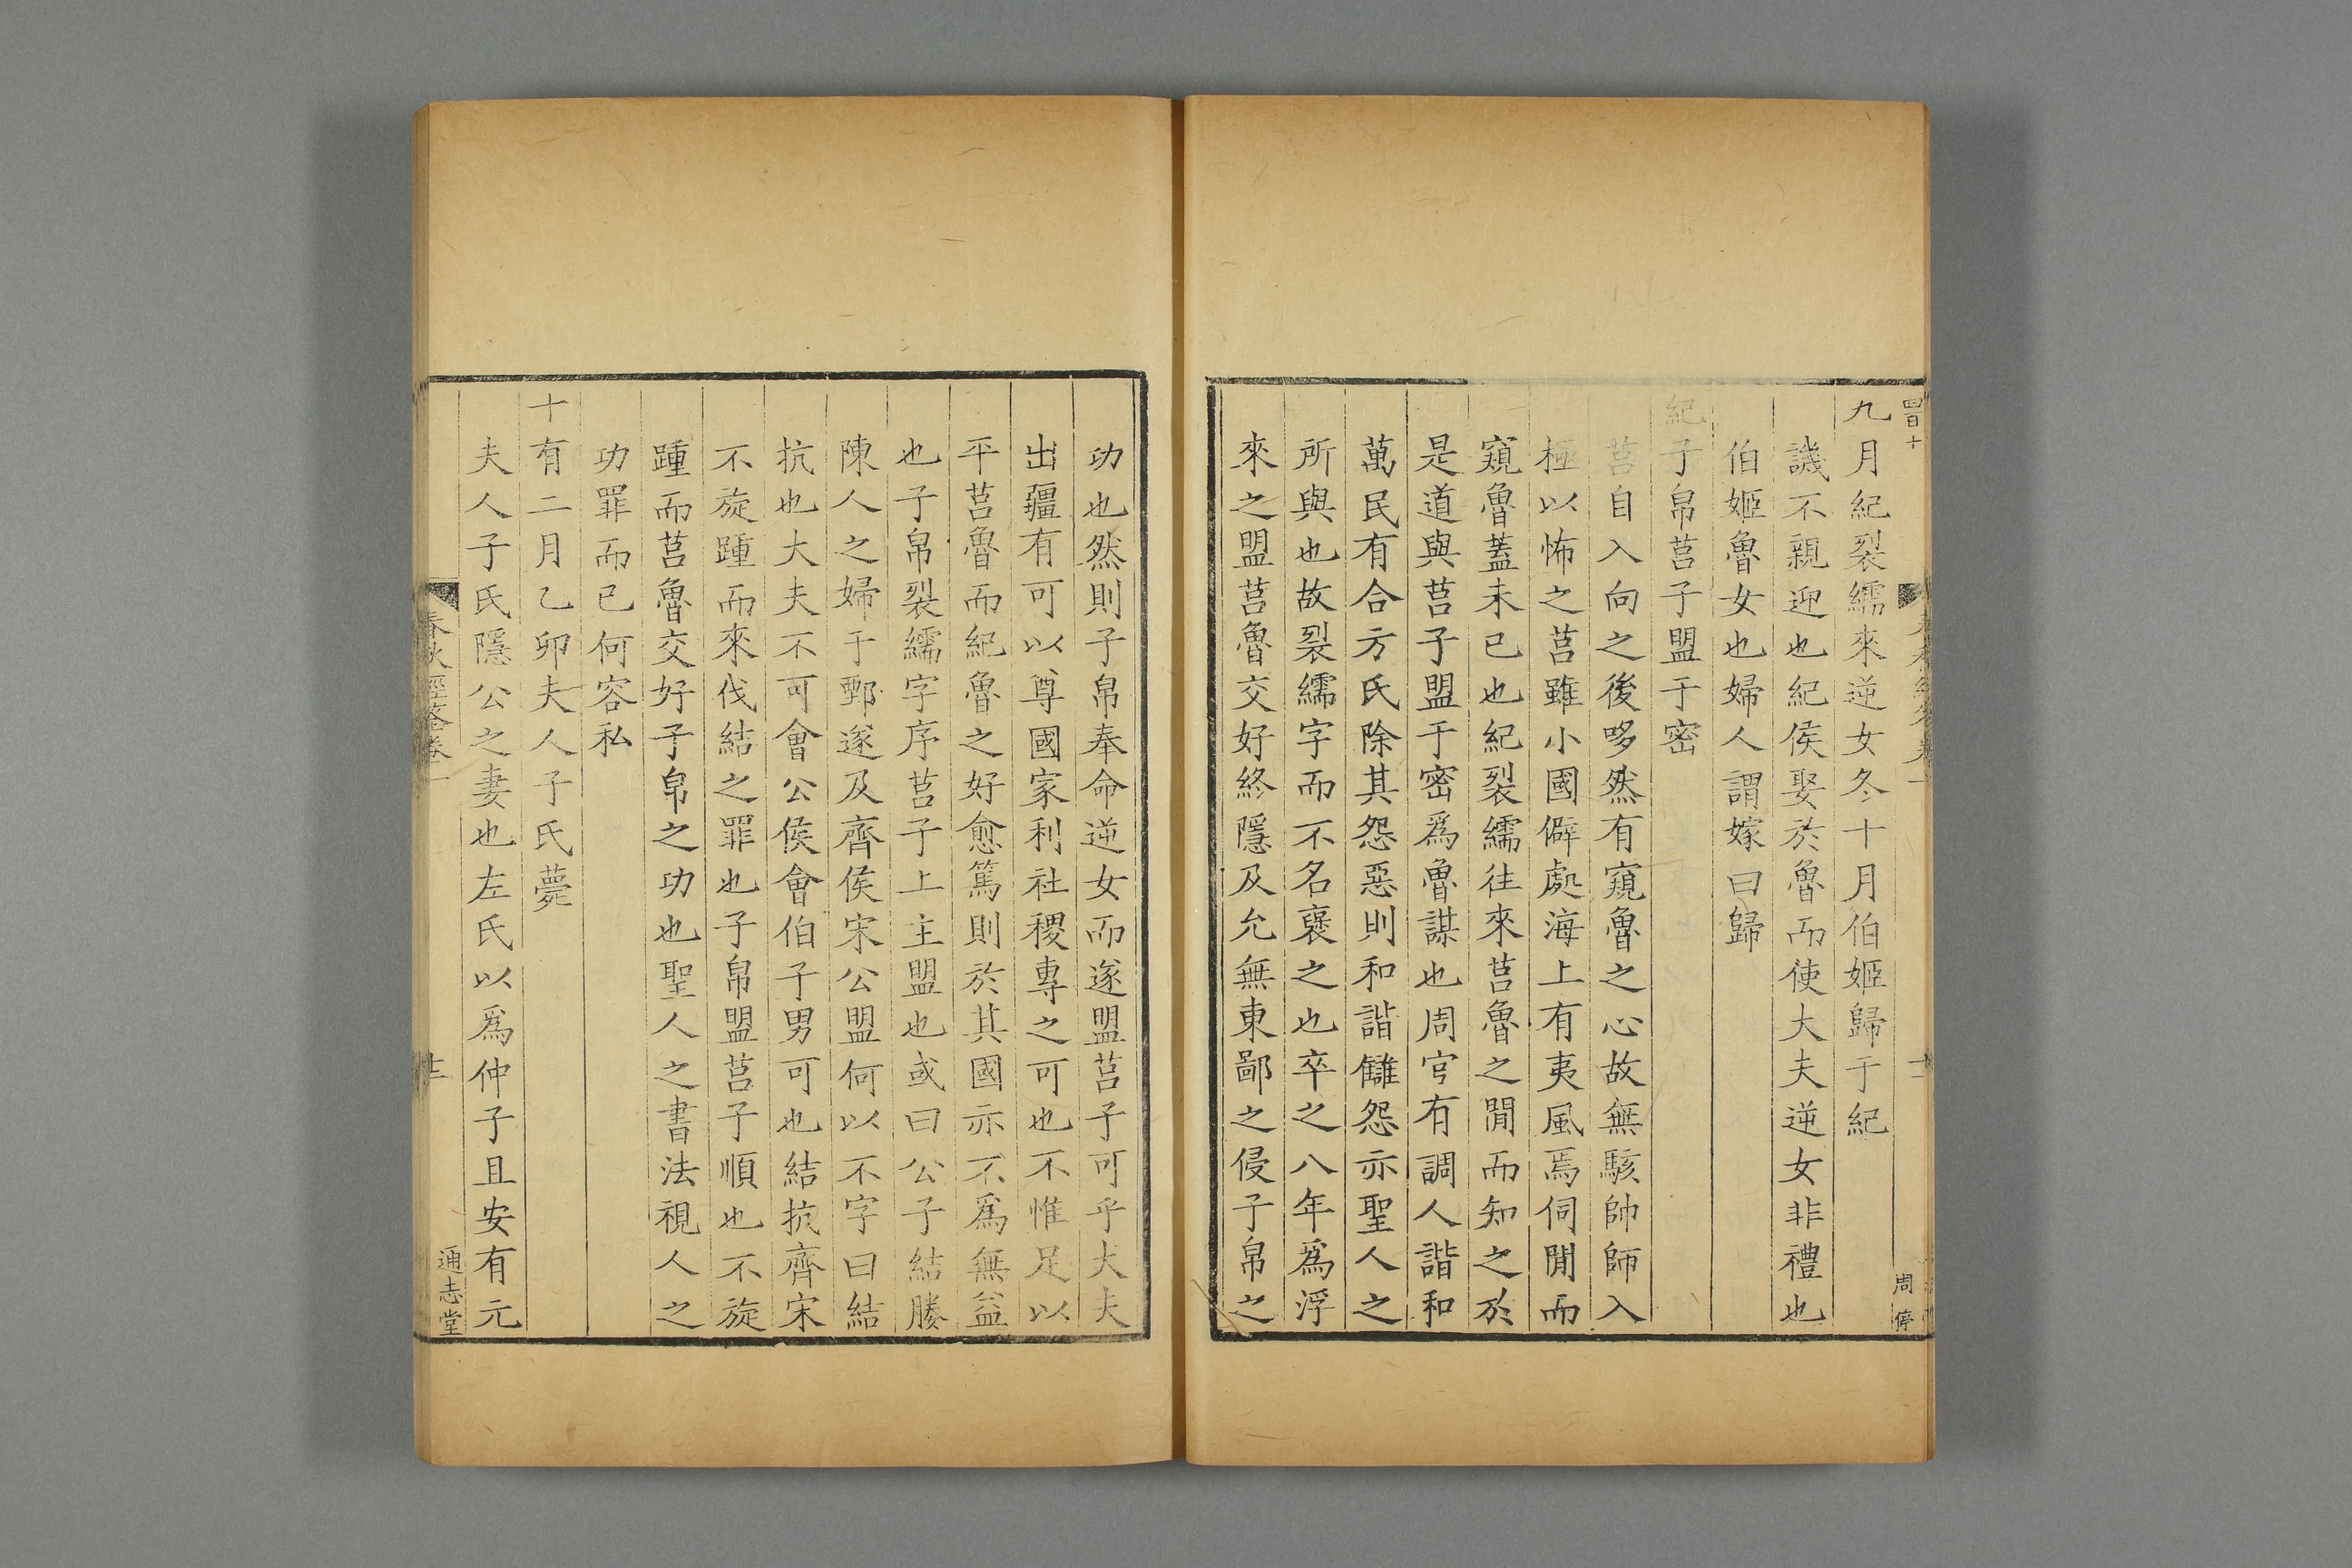 九月紀裂繻來逆女冬十月伯姬歸于紀
譏不親迎也紀侯娶於魯而使大夫逆女非禮也
伯姬魯女也婦人謂嫁曰歸
紀子帛莒子盟于密
莒自入向之後哆然有窺魯之心故無駭帥師入
極以怖之莒雖小國僻處海上有夷風焉伺閒而
窺魯蓋未已也紀裂繻往來莒魯之閒而知之於
是道與莒子盟于密爲魯謀也周官有調人諧和
萬民有合方氏除其怨惡則和諧讎怨亦聖人之
所與也故裂繻字而不名襃之也卒之八年爲浮
來之盟莒魯交好終隱及允無東鄙之侵子帛之
功也然則子帛奉命逆女而遂盟莒子可乎大夫
出疆有可以尊國家利社稷專之可也不惟足以
平莒魯而紀魯之好愈篤則於其國亦不爲無益
也子帛裂繻字序莒子上主盟也或曰公子結媵
陳人之婦于鄄遂及齊侯宋公盟何以不字曰結
抗也大夫不可會公侯會伯子男可也結抗齊宋
不旋踵而來伐結之罪也子帛盟莒子順也不旋
踵而莒魯交好子帛之功也聖人之書法視人之
功罪而已何容私
十有二月乙卯夫人子氏薨
夫人子氏隱公之妻也左氏以爲仲子且安有元
四百十
十二
周
春秋經筌卷一
通志堂